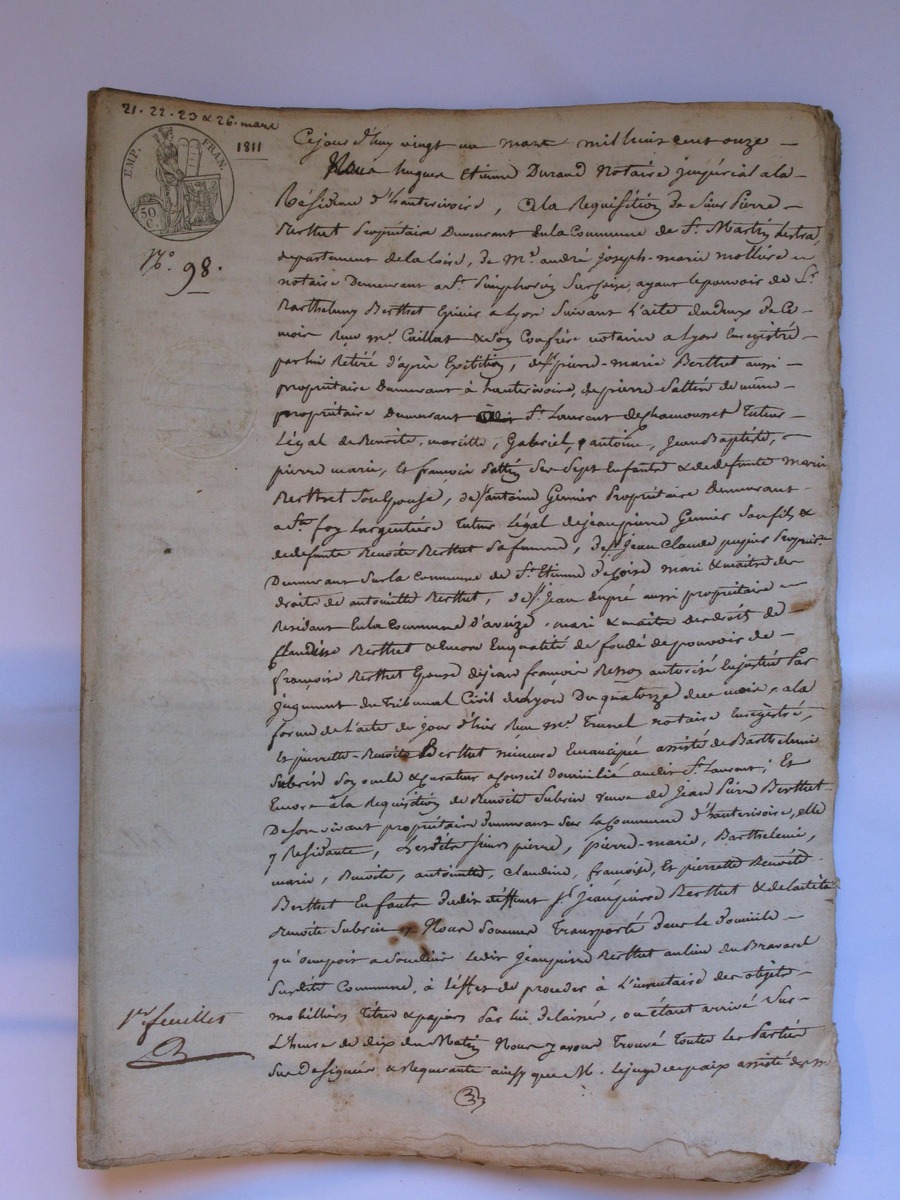 21. 22. 23 & 26. mars
1811
EMP. FRAN.
50 C.
N.o 98.
Cejourd'huy vingt un mars mil huit cent onze
Nous hugues Etienne Durand Notaire jmpérial a la
Résidence d'hauterivoire, a la Requisition de Sieur Pierre
Berthet Propriétaire Demeurant en la Commune de St. Martin Lestra,
departement de la loire, de Me. andré joseph-marie mollière
notaire Demeurant a St. Simphorien Surcoise, ayant le pouvoir de Sr.
Barthelemy Berthet Epicier a Lyon Suivant L'acte du deux de Ce
mois Reçu me. Caillat & son Confrère notaire a Lyon Enregistré
par lui Retiré d'après Expédition, de Sr. pierre-marie Berthet aussi
propriétaire Demeurant à hauterivoire, de pierre Sattin de meme
propriétaire demeurant St. Laurent de Chamousset Tuteur
Légal de Benoite, Gabriel, antoine, Jean Baptiste,
pierre marie, et françois Sattin Ses Sept Enfants & de defunte marie
Berthet Son Epouse, de Sr. antoine Propriétaire Demeurant
a Ste. foy Largentière Tuteur Légal de jean pierre Son fils &
de defunte Benoite Berthet Sa femme, de Sr. Jean Claude pupier Propriere.
Demeurant Sur la Commune de St. Etienne mari & maitre des
droits de antoinette Berthet, de Sr. Jean dupré aussi propriétaire
Residant En la Commune d'aveize, mari & maitre des droits de
Claudine Berthet & Encore En qualité de fondé de pouvoir de
françoise Berthet Epouse de jean françois autorisé En justice Par
jugement du Tribunal Civil de Lyon Du quatorze de ce mois, a la
forme de L'acte du jour d'hier Reçu me. notaire Enregistré,
Et pierrette-Benoite Berthet mineure Emancipée assisté de Barthelemi
Subrin Son oncle & Curateur a Conseil Domicilié audit St. Laurent; Et
Encore à la Requisition de Benoite Subrin veuve de Jean Pierre Berthet
De Son vivant propriétaire demeurant Sur La Commune d'hauterivoire, elle
y Residante, Lesdits Sieurs pierre, pierre-marie, Barthelemi,
marie, Benoite, antoinette, Claudine, françoise, Et pierrette Benoite
Berthet Enfants dudit deffunt Sr. Jean pierre Berthet & de laditte
Benoite Subrin Nous Sommes Transporté dans le Domicile
qu'occupoit a Son décès Ledit Jean pierre Berthet au lieu du Bravard
Surdite Commune, à L'effet de proceder à L'inventaire des objets
mobilliers Titres & papiers Par lui delaissés, ou étant arrivé Sur
L'heure de dix du Matin Nous y avons Trouvé Toutes les Parties
Sus Designées & Requerante ainsy que M. Le juge de paix assisté de M
1er. feuillet